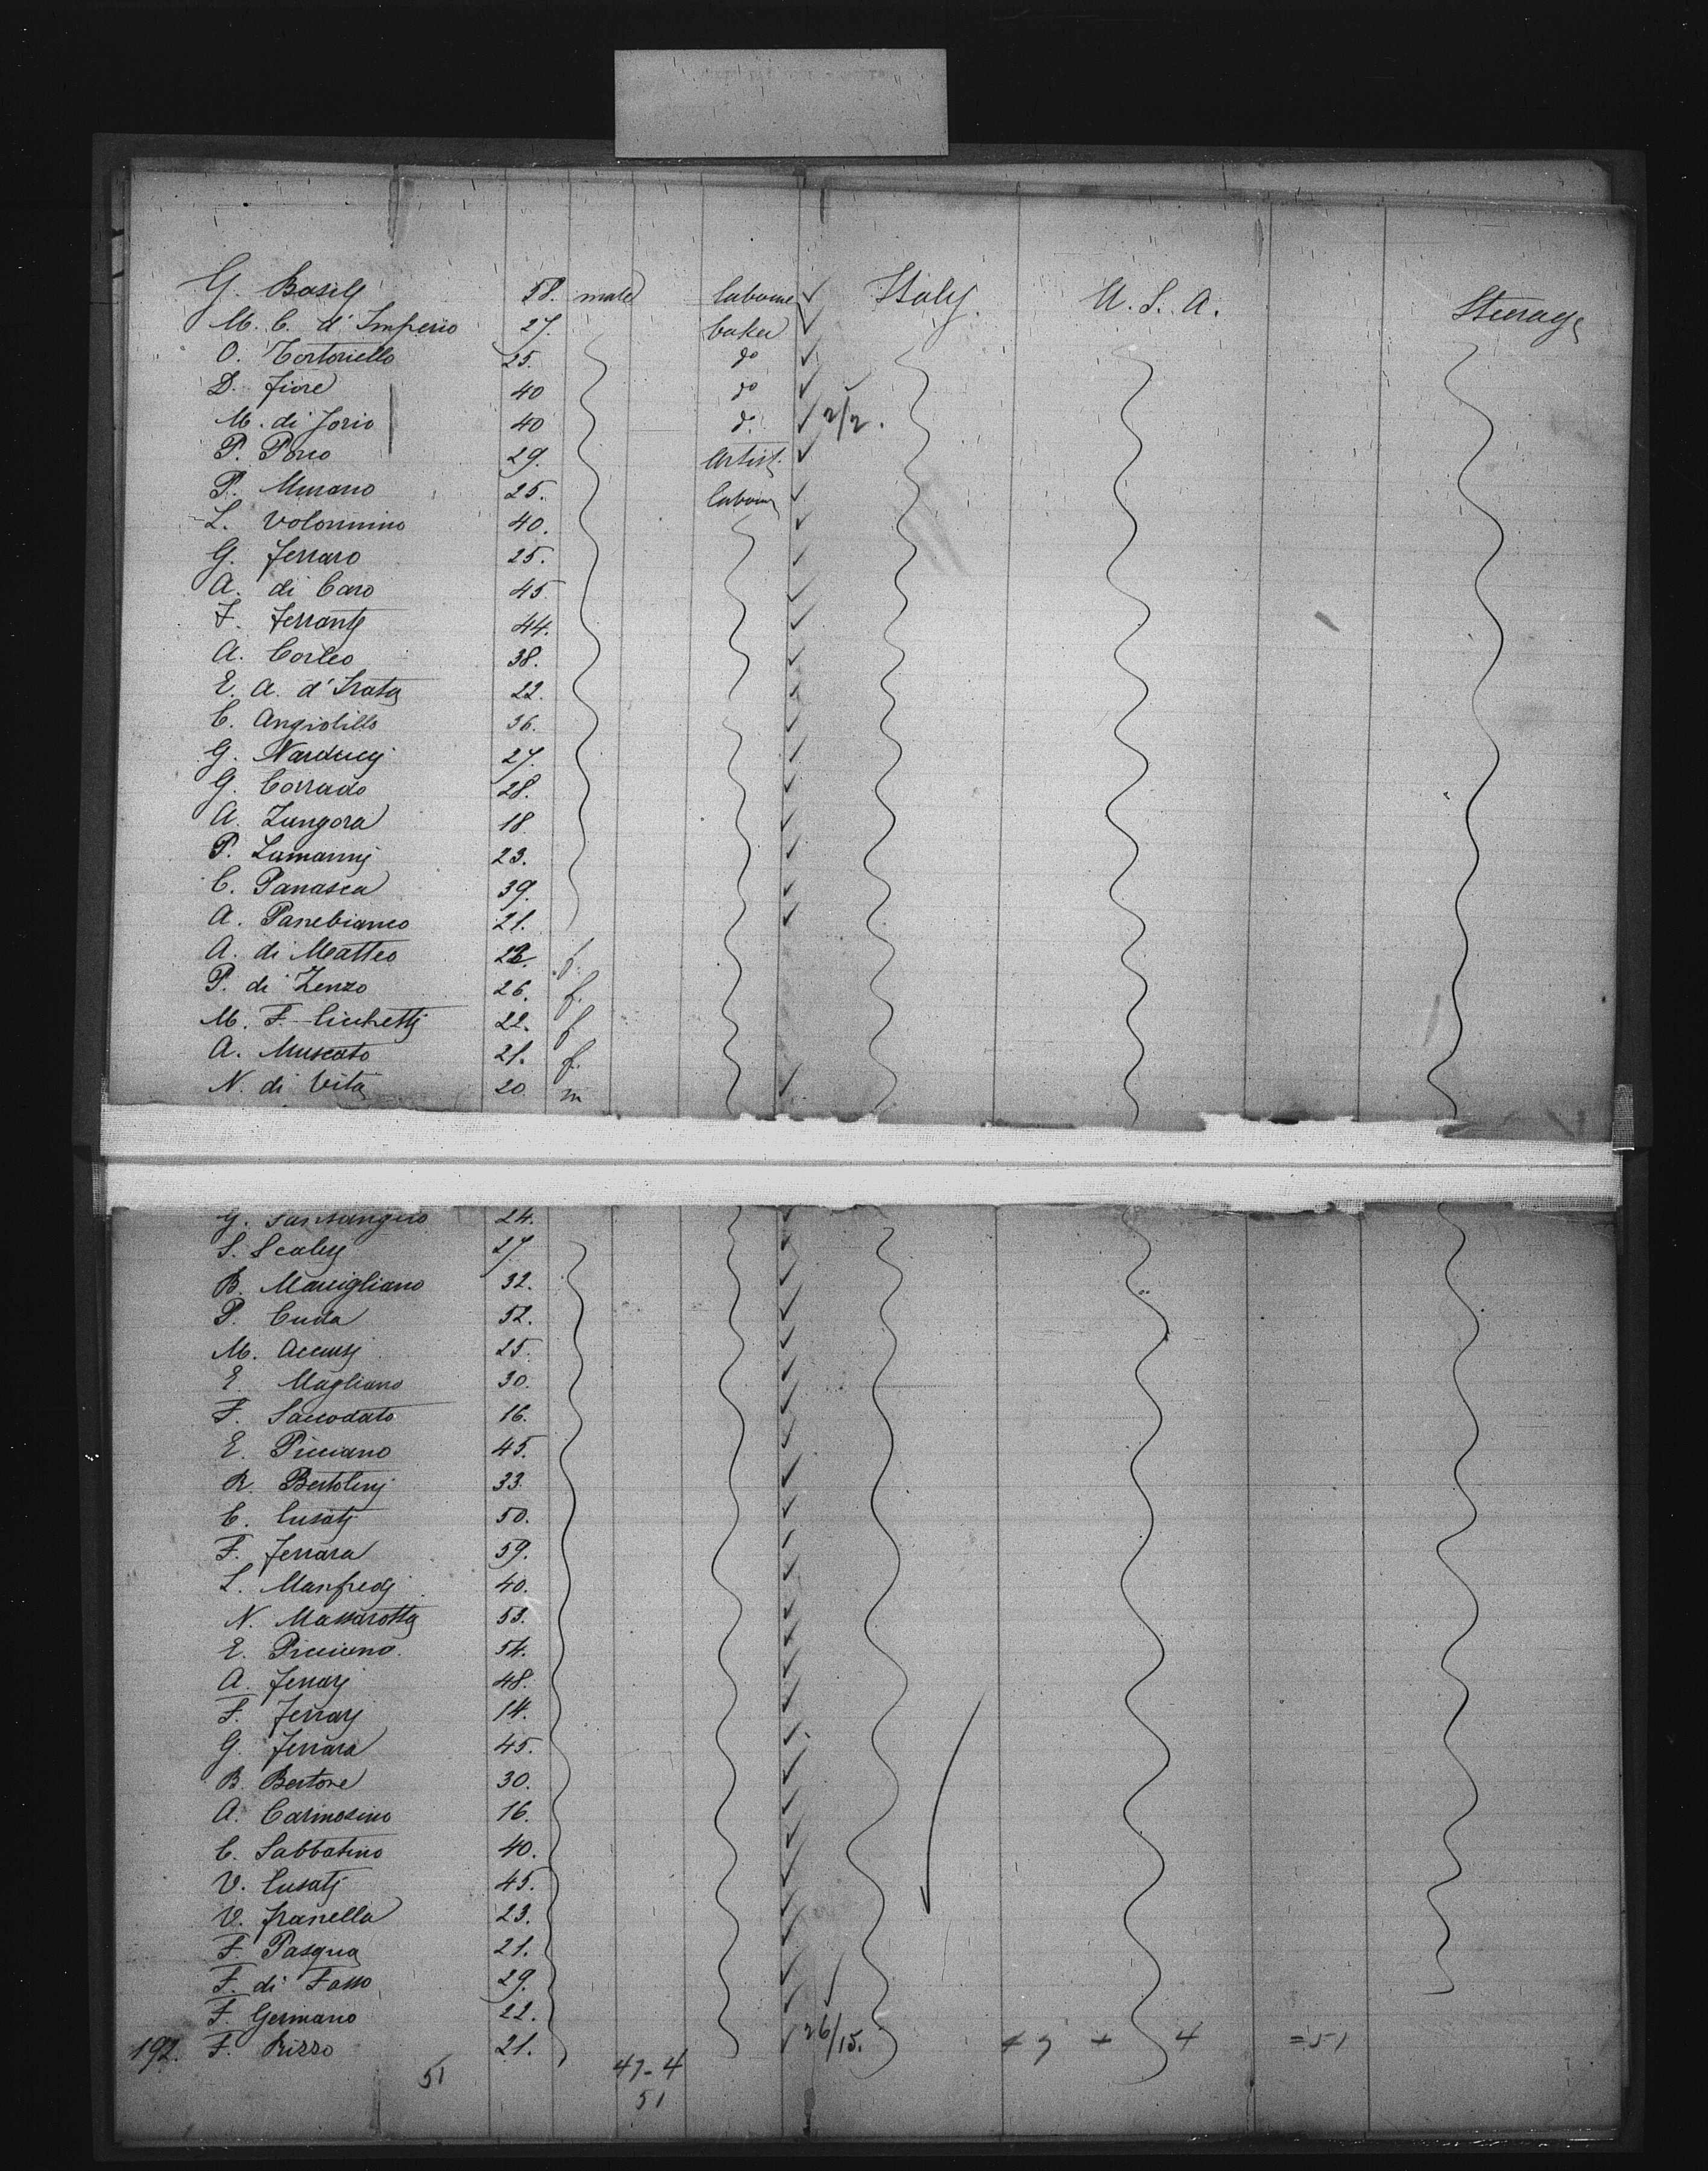 G. Basily 58. male labourer ✓ Italy U. S. A. Steerage
M. C. d'Imperio 27. baker ✓
O. Tortoriello 25. do ✓
D. Fiore 40 do ✓
M. di Jorio 40 do ✓ 2/2.
P. Porco 29. Artist ✓
P. Murano 25. labourer ✓
L. Volonnino 40. ✓
G. Ferraro 25. ✓
A. di Caro 45. ✓
F. Ferrante 44. ✓
A. Corleo 38. ✓
E. A. d'Irata 22.
C. Angiolillo 36. ✓
G. Narducci 27. ✓
G. Corrado 28. ✓
A. Zungora 18 ✓
P. Lamanni 23. ✓
C. Panasca 39. ✓
A. Panebianco 21. ✓
A. di Matteo f.
P. di Zenzo 26. f.
M. F. Cicchetti 22. f
A. Muscato 21. f.
N. di Vita 20 m ✓
G. 24. ✓
S. Scaly 27 ✓
B. Marcigliano 32. ✓
P. Cuda 52. ✓
M. Accursi 25. ✓
E. Magliano 30. ✓
F. Saccodato 16. ✓
E. Picciano 45. ✓
R. Bertolini 33. ✓
C. Cusati 50. ✓
F. Ferrara 59. ✓
L. Manfredi 40. ✓
N. Massarotta 53. ✓
E. Picciano. 54. ✓
A. Ferrari 48. ✓
F. Ferrari 14. ✓
G. Ferrara 45. ✓
B. Bertone 30. ✓
A. Carmosino 16. ✓
C. Sabbatino 40. ✓
V. Cusati 45. ✓
V. Franella 23. ✓
F. Pasqua 21. ✓
F. di Fasso 29. ✓
F. Germano 22. ✓
192. F. Rizzo 21. ✓ 26/15. 47 + 4 = 51
51 47-4
51